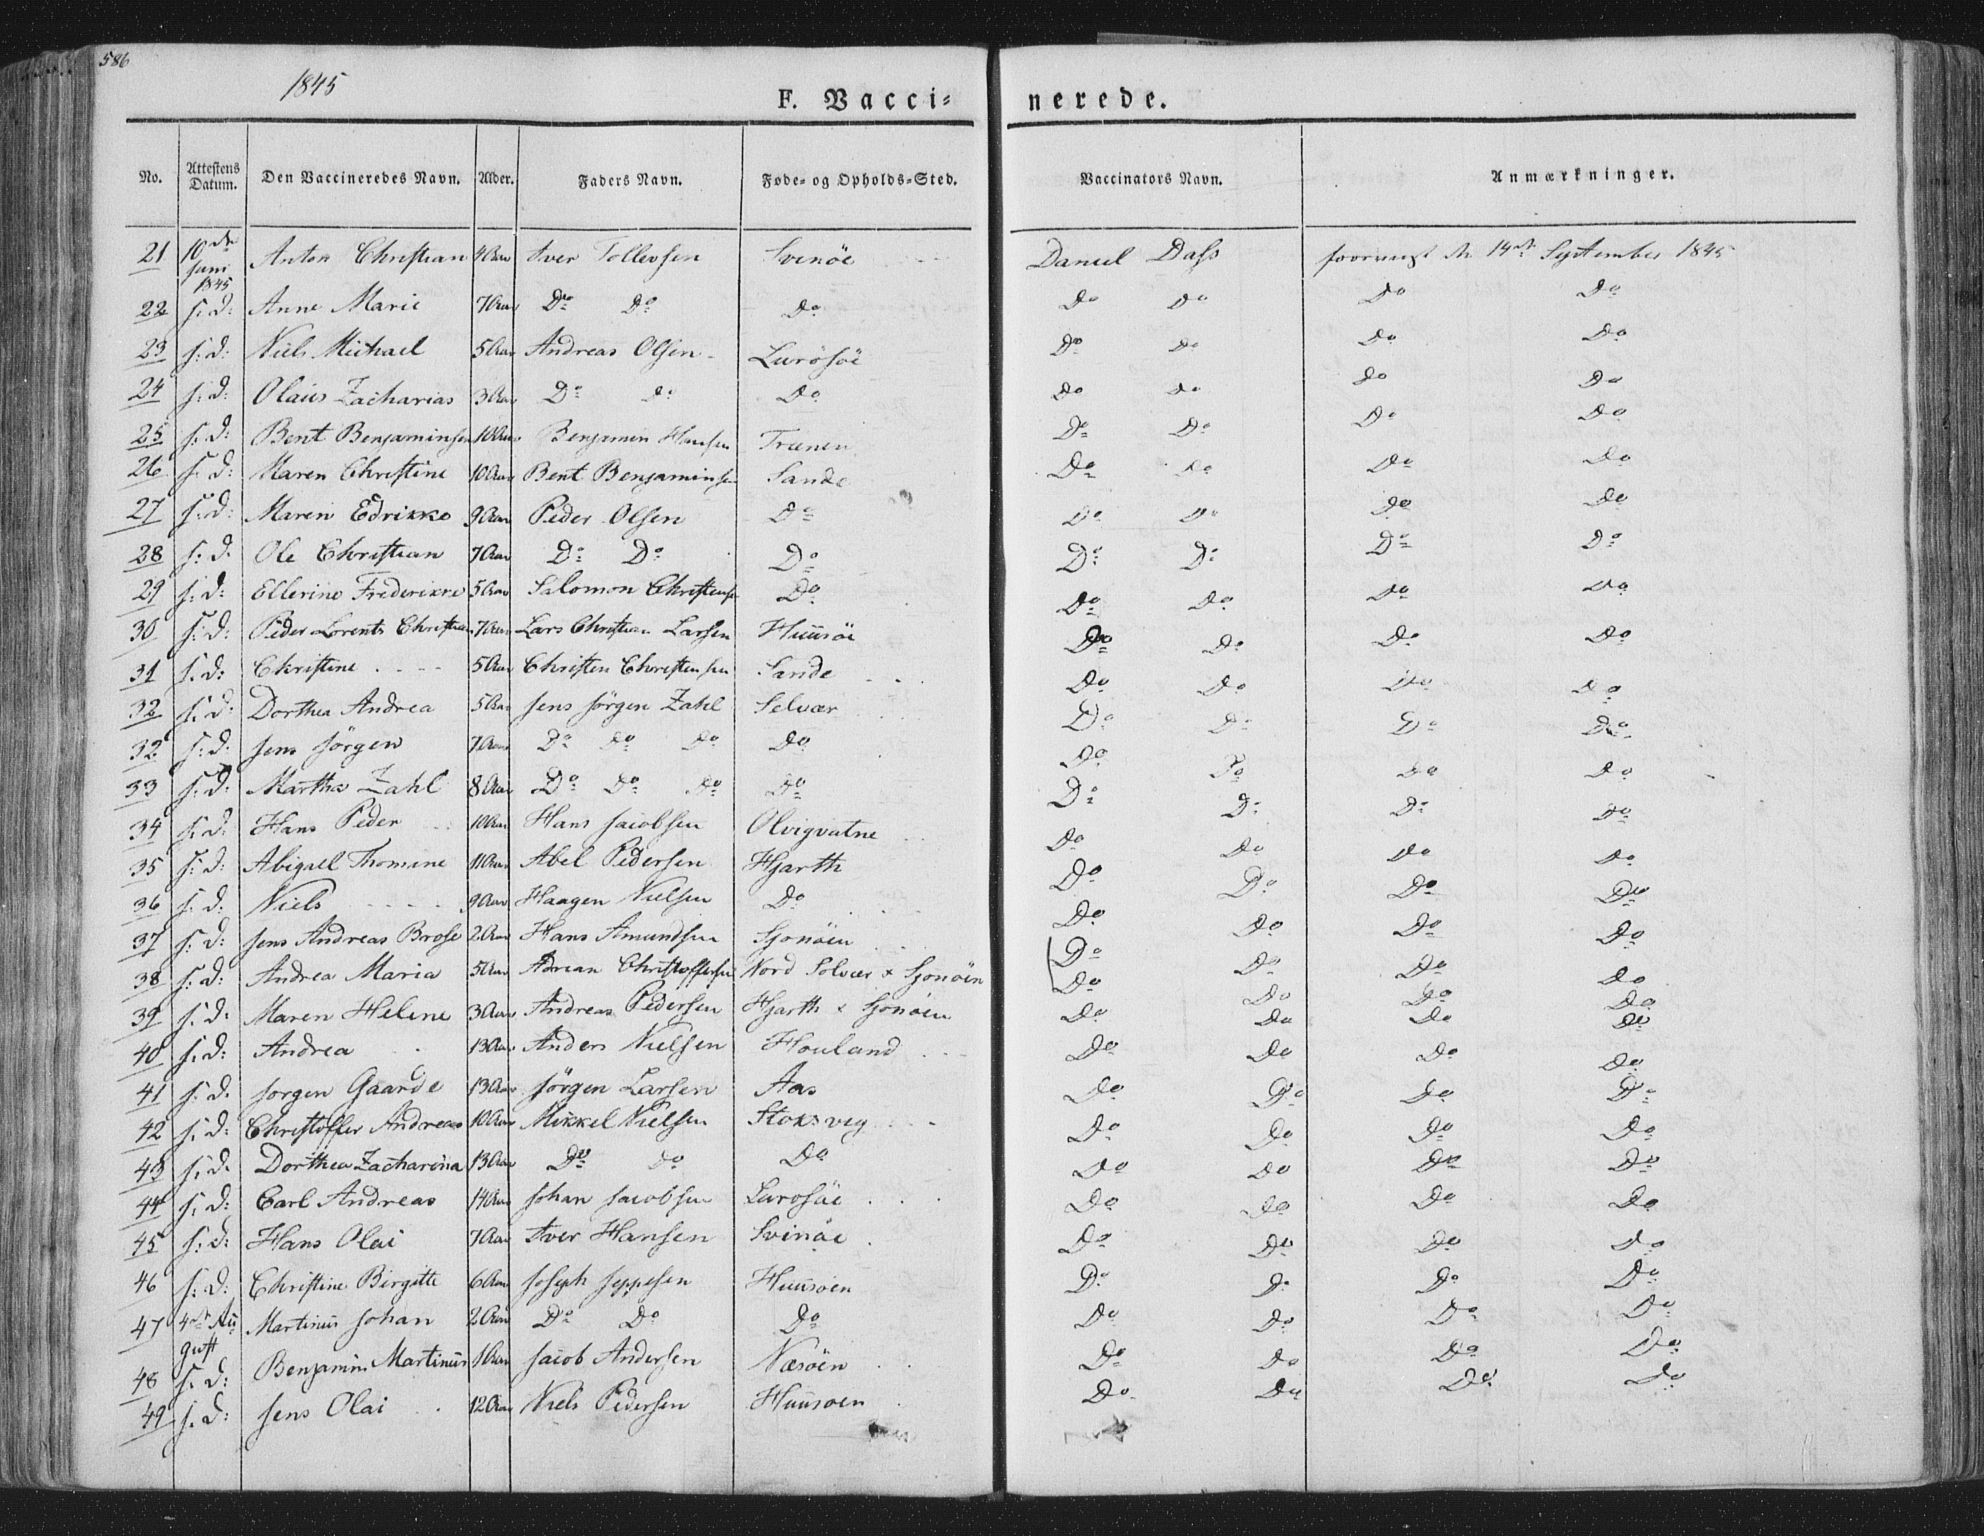 586
1845
F. Vacci- nerede.
No. Attestens Datum. Den Vaccineredes Navn. Alder. Faders Navn. Føde- og Opholds-Sted. Vaccinators Navn. Anmærkninger.
21 10de Juni 1845 Anton Christian 4 Aar Iver Tollevsen Svinöe Daniel Dass den 14de September 1845
22 s: d: Anne Marie 7 Aar Do Do Do Do Do Do Do
23 s: d: Niels Michael 5 Aar Andreas Olsen Luröföe Do Do Do Do
24 s: d: Olaus Zacharias 3 Aar Do do Do Do do do Do
25 s: d: Bent Benjaminsen 10 Aar Benjamin Hansen Trænen Do Do Do Do
26 s: d: Maren Christine 10 Aar Bent Benjaminsen Sande Do Do Do Do
27 s: d: Maren Edrikke 9 Aar Peder Olsen Do Do Do Do Do
28 s: d: Ole Christian 7 Aar Do Do Do Do Do Do Do
29 s: d: Ellerine Frederikke 5 Aar Salomon Christensen Do Do Do Do Do
30 s: d: Peder Lorents Christian 7 Aar Lars Christian Larsen Huusöe Do Do Do Do
31 s: d: Christine 5 Aar Christen Christensen Sande Do Do Do Do
32 s: d: Dorthea Andrea 5 Aar Jens Jörgen Zahl Selvær Do Do Do Do
32 s: d: Jens Jörgen 7 Aar Do Do Do Do Do Do Do Do
33 s: d: Martha Zahl 8 Aar Do Do Do Do Do Do Do Do
34 s: d: Hans Peder 10 Aar Hans Jacobsen Olvigvatne Do Do Do Do
35 s: d: Abigael Thomine 11 Aar Abel Pedersen Hjarth Do Do Do Do
36 s: d: Niels 9 Aar Haagen Nielsen Do Do Do Do Do
37 s: d: Jens Andreas Brose 2 Aar Hans Amundsen Sjonöen Do Do Do Do
38 s: d: Andrea Maria 5 Aar Adrian Christoffersen Nord Solvær x Sjonöen Do Do Do Do
39 s: d: Maren Helene 3 Aar Andreas Pedersen Hjarth x Sjonöen Do Do Do Do
40 s: d: Andrea 13 Aar Anders Nielsen Houland Do Do Do Do
41 s: d: Jörgen Gaarde 13 Aar Jörgen Larsen Aas Do Do Do Do
42 s: d: Christoffer Andreas 10 Aar Mikkel Nielsen Stoksvig Do Do Do Do
43 s: d: Dorthea Zacharina 13 Aar Do do Do Do Do Do Do
44 s: d: Carl Andreas 14 Aar Johan Jacobsen Luroföe Do Do Do Do
45 s: d: Hans Olai 7 Aar Iver Hansen Svinöe Do Do Do Do
46 s: d: Christine Birgitte 6 Aar Joseph Jeppesen Huusöen Do Do Do Do
47 4de August Martinus Johan 2 Aar Do Do Do Do Do Do Do
48 s: d: Benjamin Martinus 1 Aar Jacob Andersen Næsöen Do Do Do Do
49 s: d: Jens Olai 12 Aar Niels Pedersen Huusoen Do Do Do Do